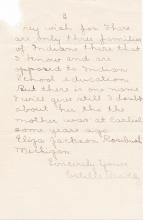 3
They wish for. There
are only three families
of Indians there that
I know and are
opposed to Indian
School education.
But there is one more
I will give still I doubt
about her tho the
mother was at Carlisle
some years ago
Eliza Jackson
Milligan
Sincerely Yours